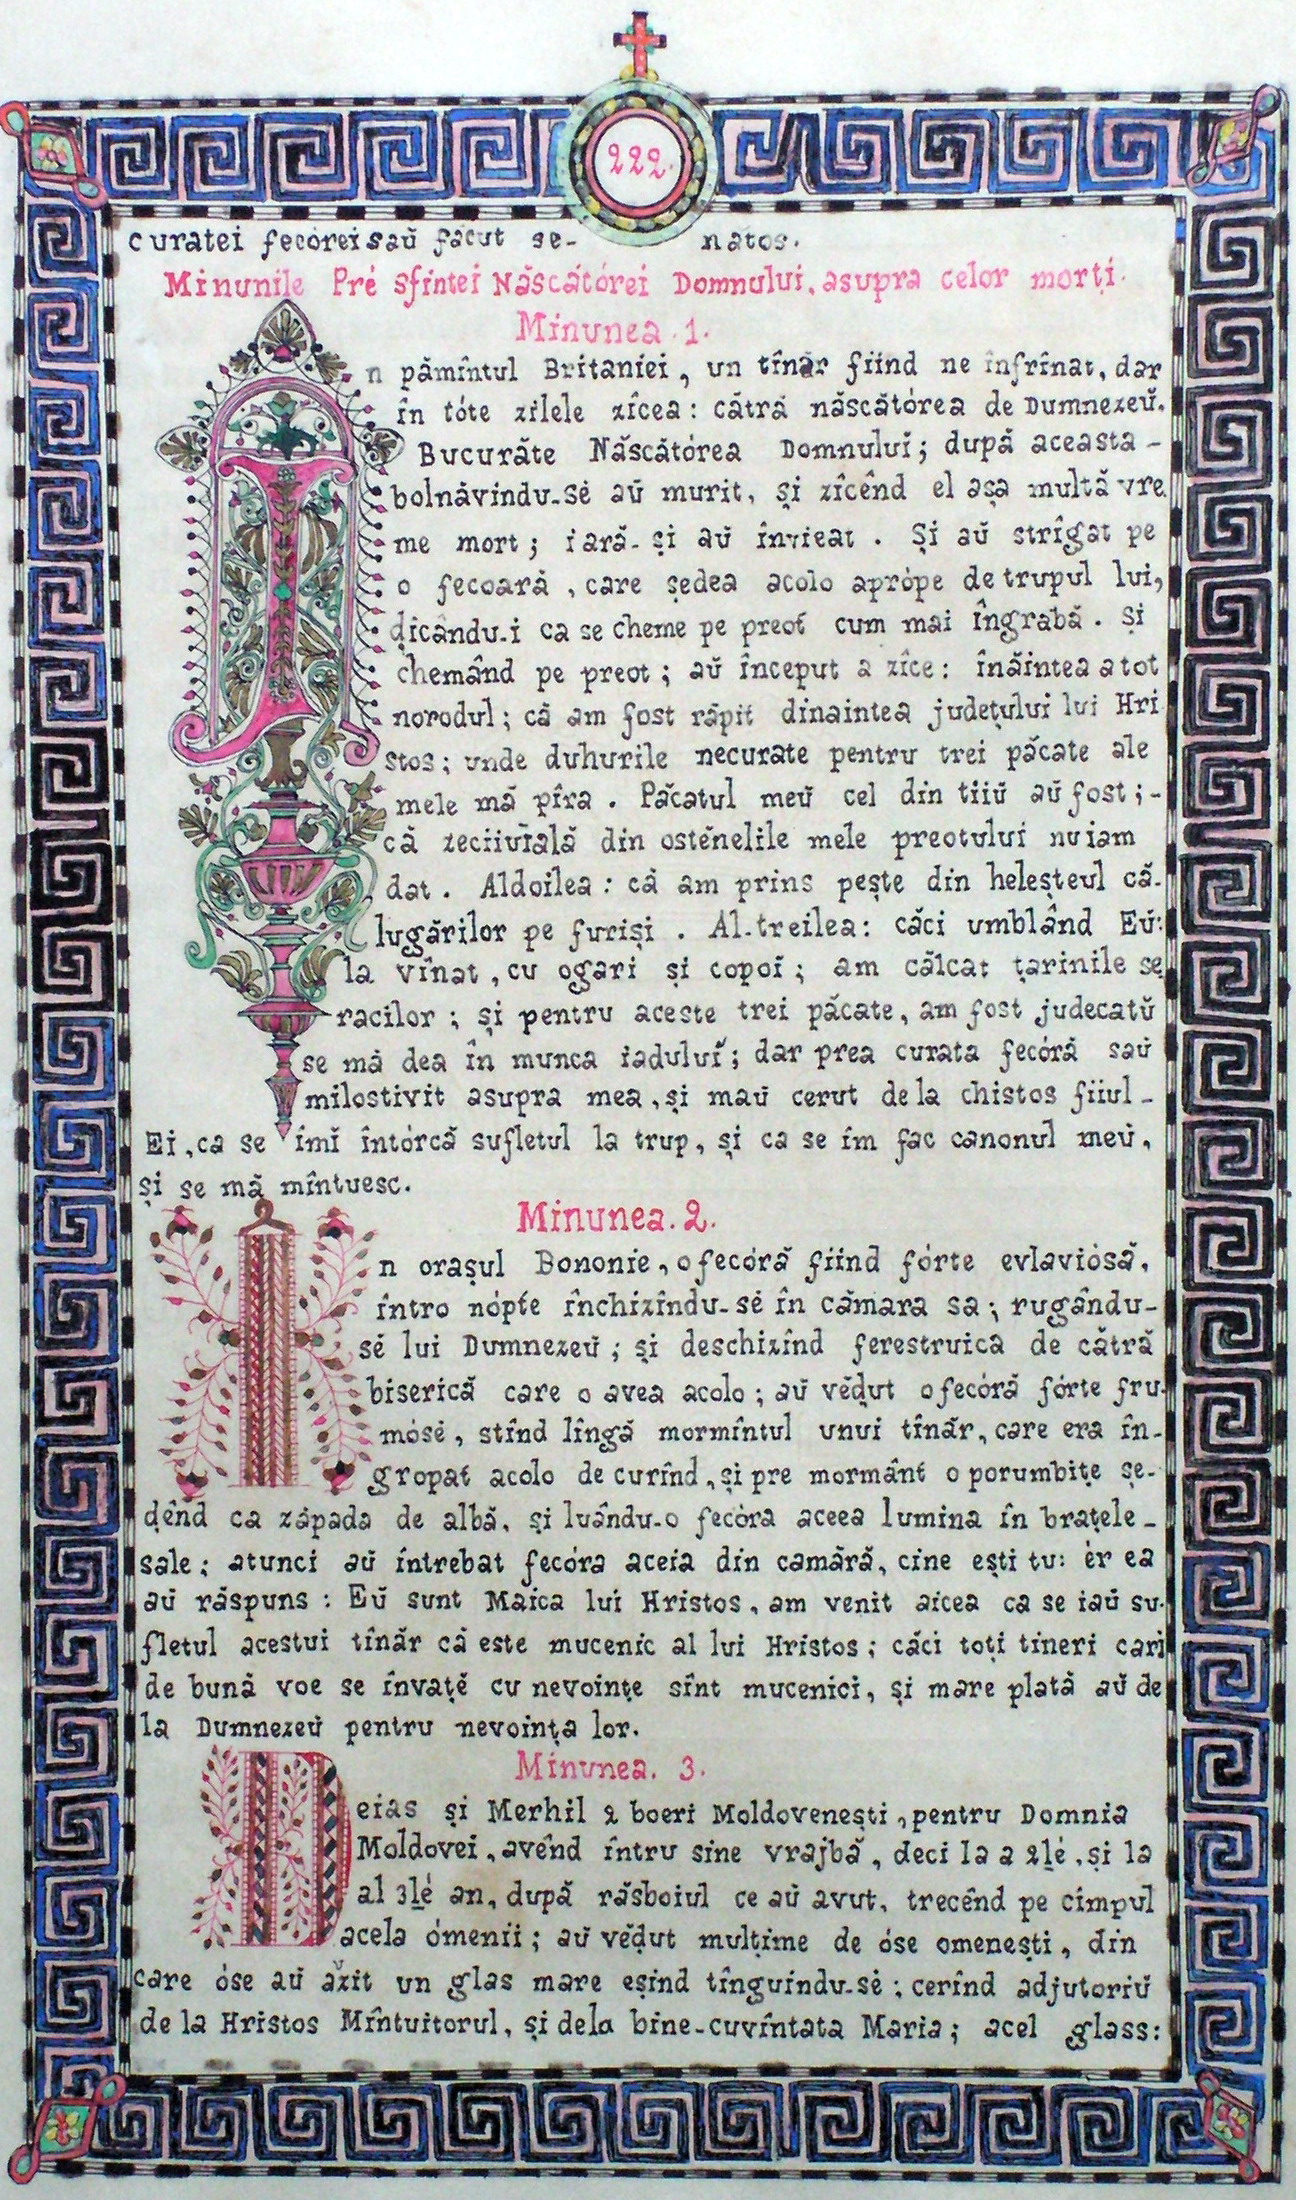 222.
curatei fecórei saŭ făcut se-natos.
Minunile Pré sfintei Născătórei Domnului, asupra celor morți.
Minunea 1.
În pămîntul Britaniei, un tînăr fiind ne înfrînat, dar
în tóte zilele zîcea: cătră născătórea de Dumnezeŭ.
Bucurăte Născătórea Domnului; după aceasta -
bolnăvindu-sé aŭ murit, și zîcênd el așa multă vre
me mort; iară-și aŭ învieat. Și aŭ strîgat pe
o fecoară, care ședea acolo aprópe de trupul lui,
dicându-i ca se cheme pe preot cum mai îngrabă. Și
chemând pe preot; aŭ început a zîce: înăintea a tot
norodul; că am fost răpit dinaintea județului lui Hri
stos; unde duhurile necurate pentru trei păcate ale
mele mă pîra. Păcatul meŭ cel din tiiŭ aŭ fost; -
că zeciiuială din osténelile mele preotului nu iam
dat. Aldoilea: că am prins pește din heleșteul că-
lugărilor pe furiși. Al-treilea: căci umblând Eŭ:
la vînat, cu ogari și copoi; am călcat țarinile se
racilor; și pentru aceste trei păcate, am fost judecatŭ
se mă dea în munca iadului; dar prea curata fecóră saŭ
milostivit asupra mea, și maŭ cerut de la chistos fiiul -
Ei, ca se îmĭ întórcă sufletul la trup, și ca se îm fac canonul meŭ,
și se mă mîntuesc.
Minunea. 2.
În orașul Bononie, o fecóră fiind fórte evlaviósă,
întro nópte închizîndu-sé în cămara sa; rugându-
sé lui Dumnezeŭ; și deschizînd ferestruica de cătră
biserică care o avea acolo; aŭ vĕḍut o fecóră fórte fru-
mósé, stînd lîngă mormîntul unui tînăr, care era în-
gropat acolo de curînd, și pre mormânt o porumbițe șe-
ḍênd ca zăpada de albă, și luându-o fecóra aceea lumina în brațele -
sale; atunci aŭ întrebat fecóra aceia din camără, cine ești tu: ér ea
aŭ răspuns: Eŭ sunt Maica lui Hristos, am venit aicea ca se iaŭ su-
fletul acestui tînăr că este mucenic al lui Hristos; căci toți tineri cari
de bună voe se învațé cu nevoințe sînt mucenici, și mare plată aŭ de
la Dumnezeŭ pentru nevoința lor.
Minunea. 3.
Deias și Merhil 2 boeri Moldovenești, pentru Domnia
Moldovei, avênd întru sine vrajbă, deci la a 2lé, și la
al 3lé an, după răsboiul ce aŭ avut, trecênd pe cîmpul
acela ómenii; aŭ vĕḍut mulțime de óse omenești, din
care óse aŭ aŭzit un glas mare eșind tînguindu-sé; cerînd adjutoriŭ
de la Hristos Mîntuitorul, și dela bine-cuvîntata Maria; acel glass: